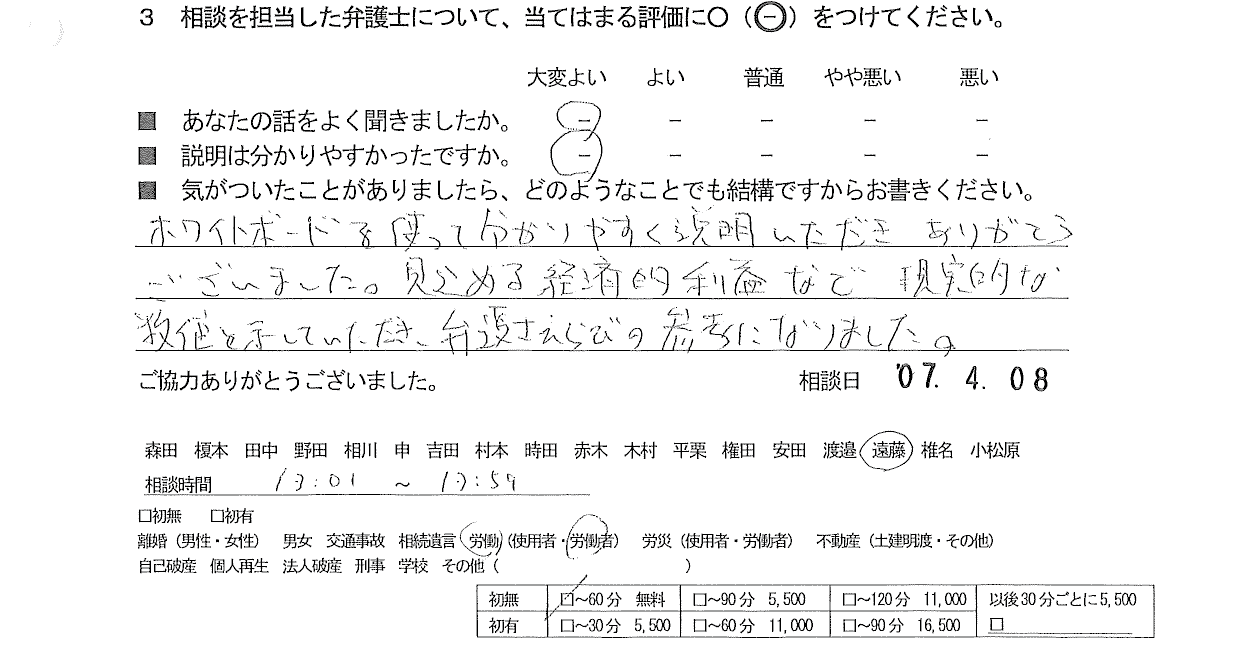 3 相談を担当した弁護士について、当てはまる評価に〇（㊀）をつけてください。
大変よい よい 普通 やや悪い 悪い
■ あなたの話をよく聞きましたか。 − − − − −
■ 説明は分かりやすかったですか。 − − − − −
■ 気がついたことがありましたら、どのようなことでも結構ですからお書きください。
ホワイトボードを使って分かりやすく説明いただき ありがとう
ございました。見込める経済的利益など 現実的な
数値を示していただき、弁護士えらびの参考になりました。
ご協力ありがとうございました。 相談日 '07. 4. 08
森田 榎本 田中 野田 相川 申 吉田 村本 時田 赤木 木村 平栗 権田 安田 渡邉 遠藤 椎名 小松原
相談時間 13:01 ~ 13:59
□初無 □初有
離婚（男性・女性） 男女 交通事故 相続遺言 労働（使用者・労働者） 労災（使用者・労働者） 不動産（土建明渡・その他）
自己破産 個人再生 法人破産 刑事 学校 その他（ ）
初無 □～60分 無料 □～90分 5,500 □～120分 11,000 以後30分ごとに5,500
初有 □～30分 5,500 □～60分 11,000 □～90分 16,500 □